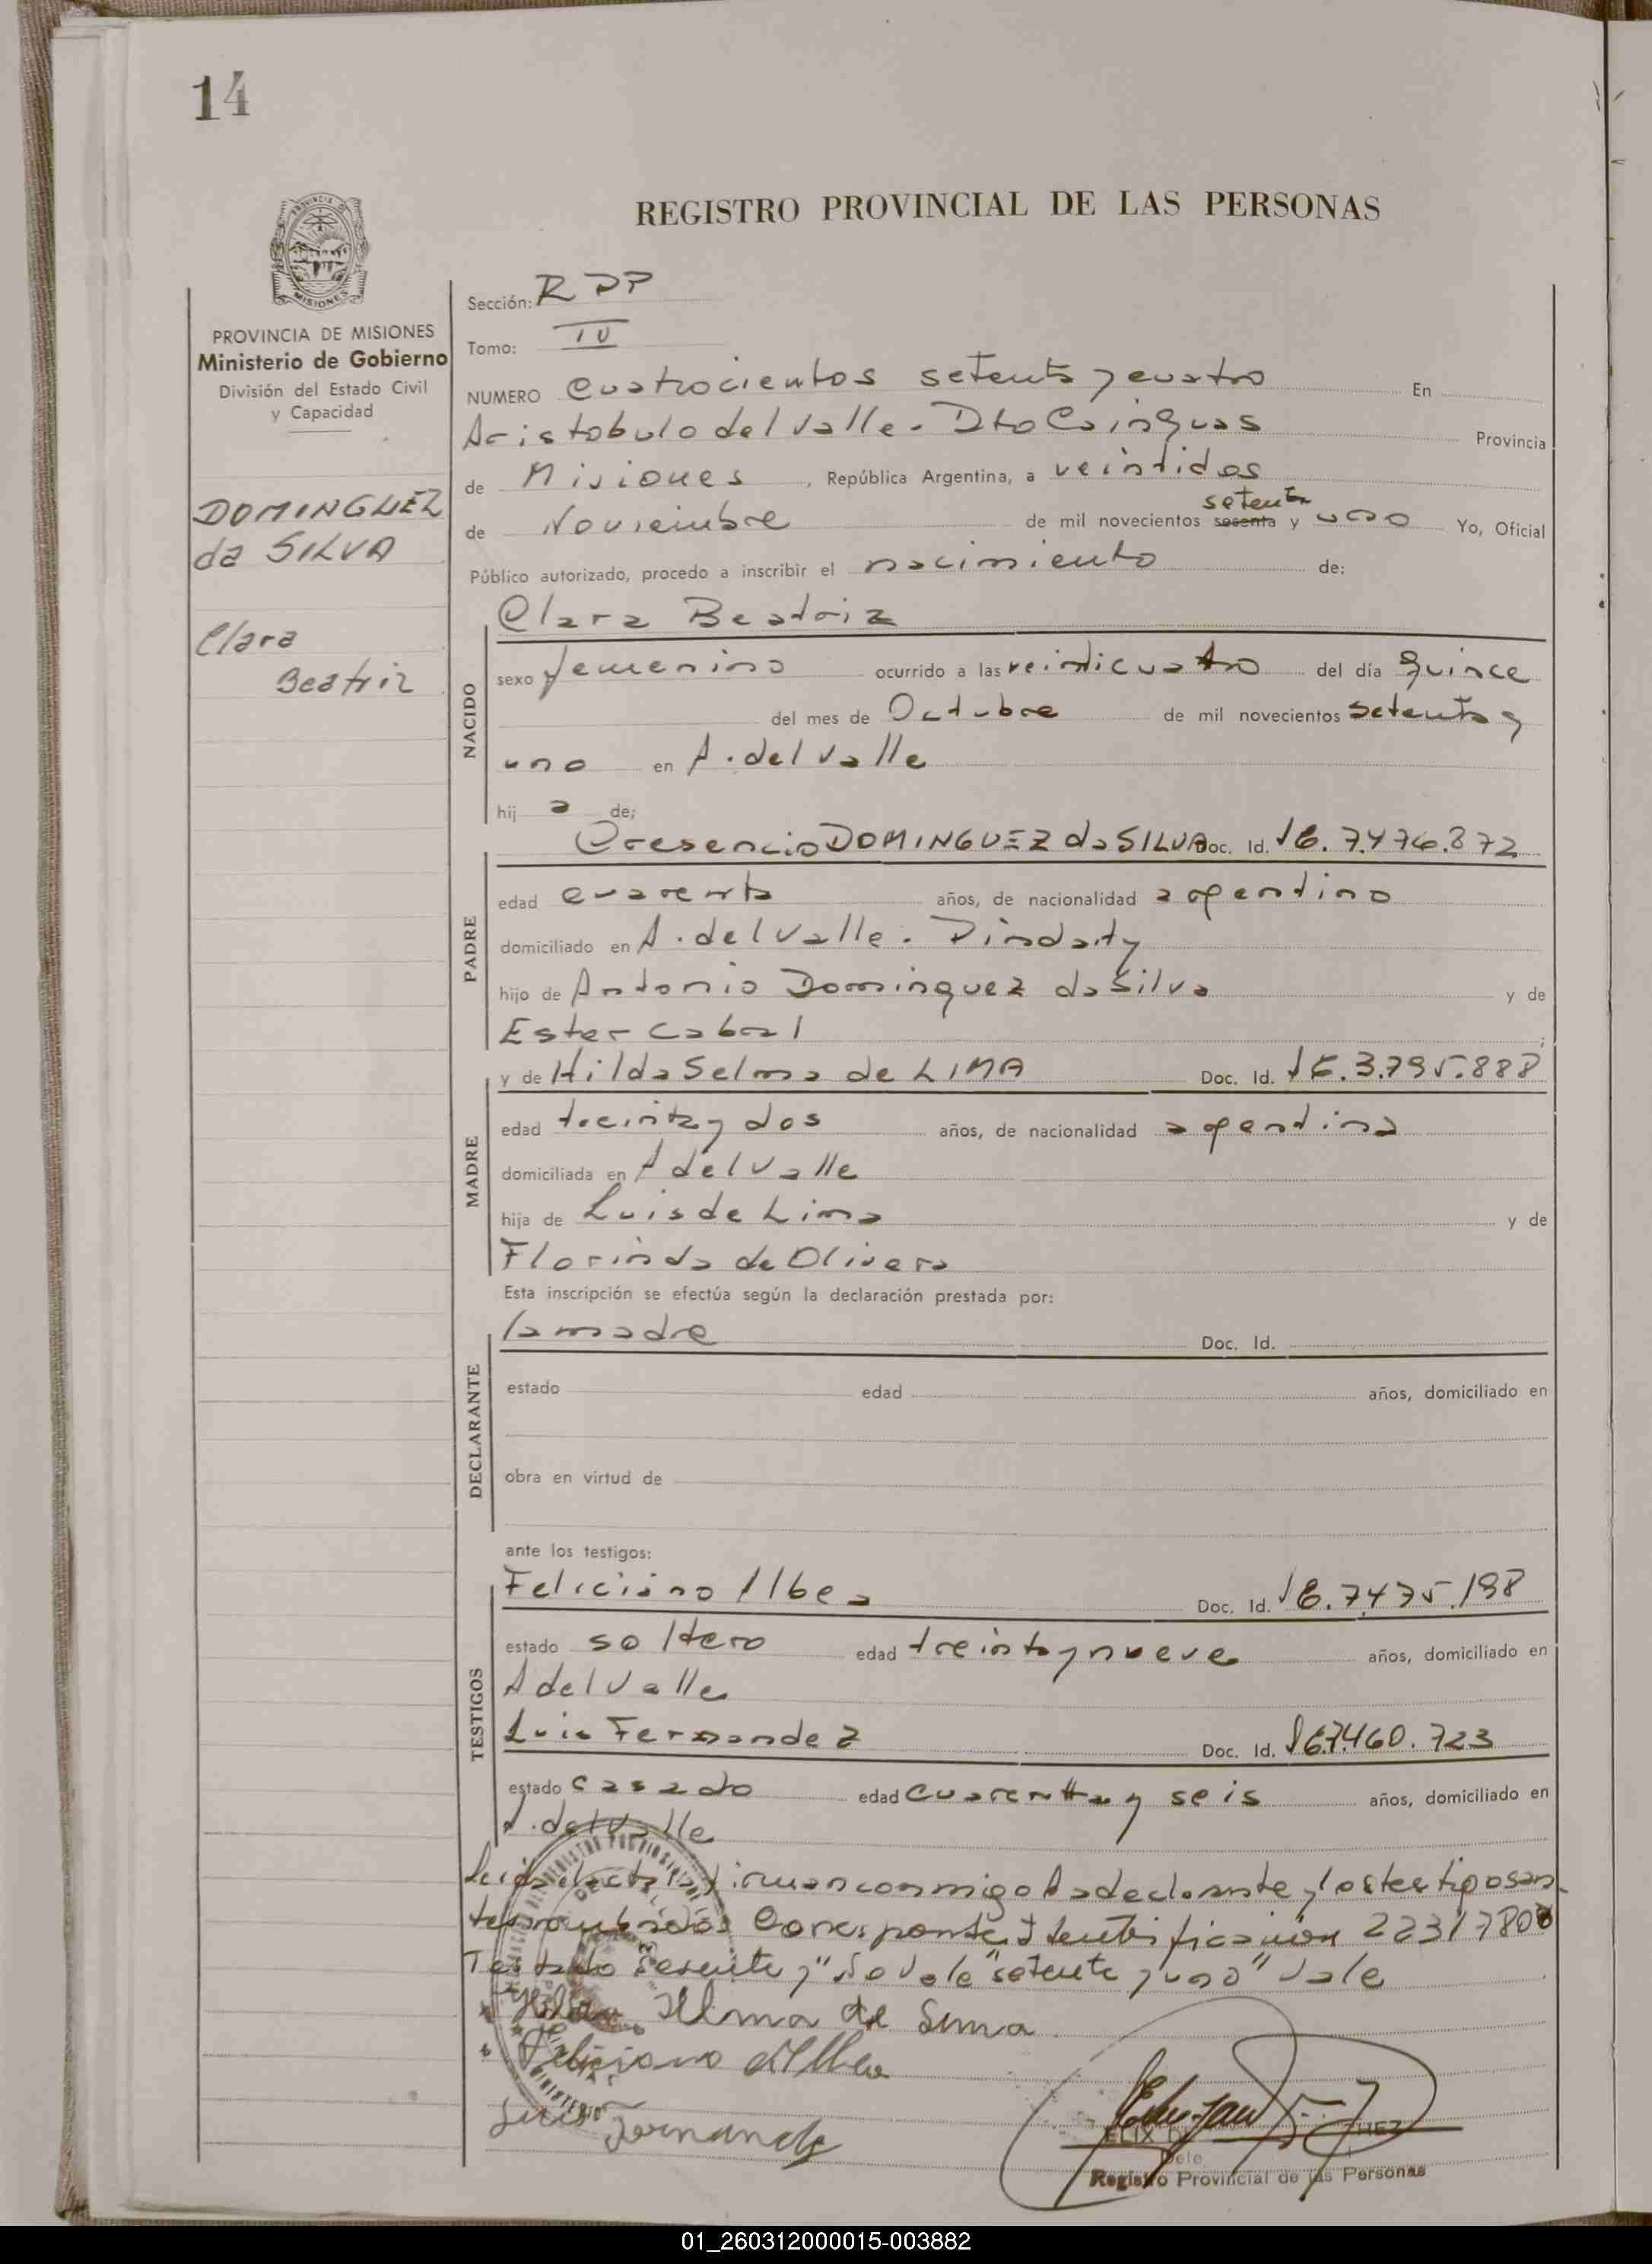 14
REGISTRO PROVINCIAL DE LAS PERSONAS
PROVINCIA DE MISIONES
Ministerio de Gobierno
División del Estado Civil
y Capacidad
DOMINGUEZ
da SILVA
Clara
Beatriz
Sección: R P P
Tomo: IV
NUMERO Cuatrocientos setenta y cuatro En
Aristobulo del Valle. Dto Cainguas Provincia
de Misiones, República Argentina, a veintidos
setenta
de Noviembre de mil novecientos sesenta y uno Yo, Oficial
Público autorizado, procedo a inscribir el nacimiento de:
Clara Beatriz
NACIDO
sexo femenino ocurrido a las veinticuatro del día quince
del mes de Octubre de mil novecientos setenta y
uno en A. del Valle
hij a de;
PADRE
Cresencio DOMINGUEZ da SILVA Doc. Id. 7.476.872
edad cuarenta años, de nacionalidad argentino
domiciliado en A. del Valle. Pindaity
hijo de Antonio Dominguez da Silva y de
Ester Cabral ;
MADRE
y de Hilda Selma de LIMA Doc. Id. 3.795.888
edad treinta y dos años, de nacionalidad argentina
domiciliada en A del Valle
hija de Luis de Lima y de
Florinda de Olivera
Esta inscripción se efectúa según la declaración prestada por:
DECLARANTE
la madre Doc. Id.
estado edad años, domiciliado en
obra en virtud de
ante los testigos:
TESTIGOS
Feliciano Doc. Id. 7.475.198
estado soltero edad treinta y nueve años, domiciliado en
A del Valle
Luis Fernandez Doc. Id. 7.460.723
estado casado edad cuarenta y seis años, domiciliado en
A. del Valle
Leida el acta la firman conmigo la declarante y los testigos an-
tes nombrados Corresponde 
Testado "sesenta y" No Vale "setenta y uno" Vale
Hilda Selma de Lima
Feliciano
Luis Fernandez
Registro Provincial de las Personas
01_260312000015-003882